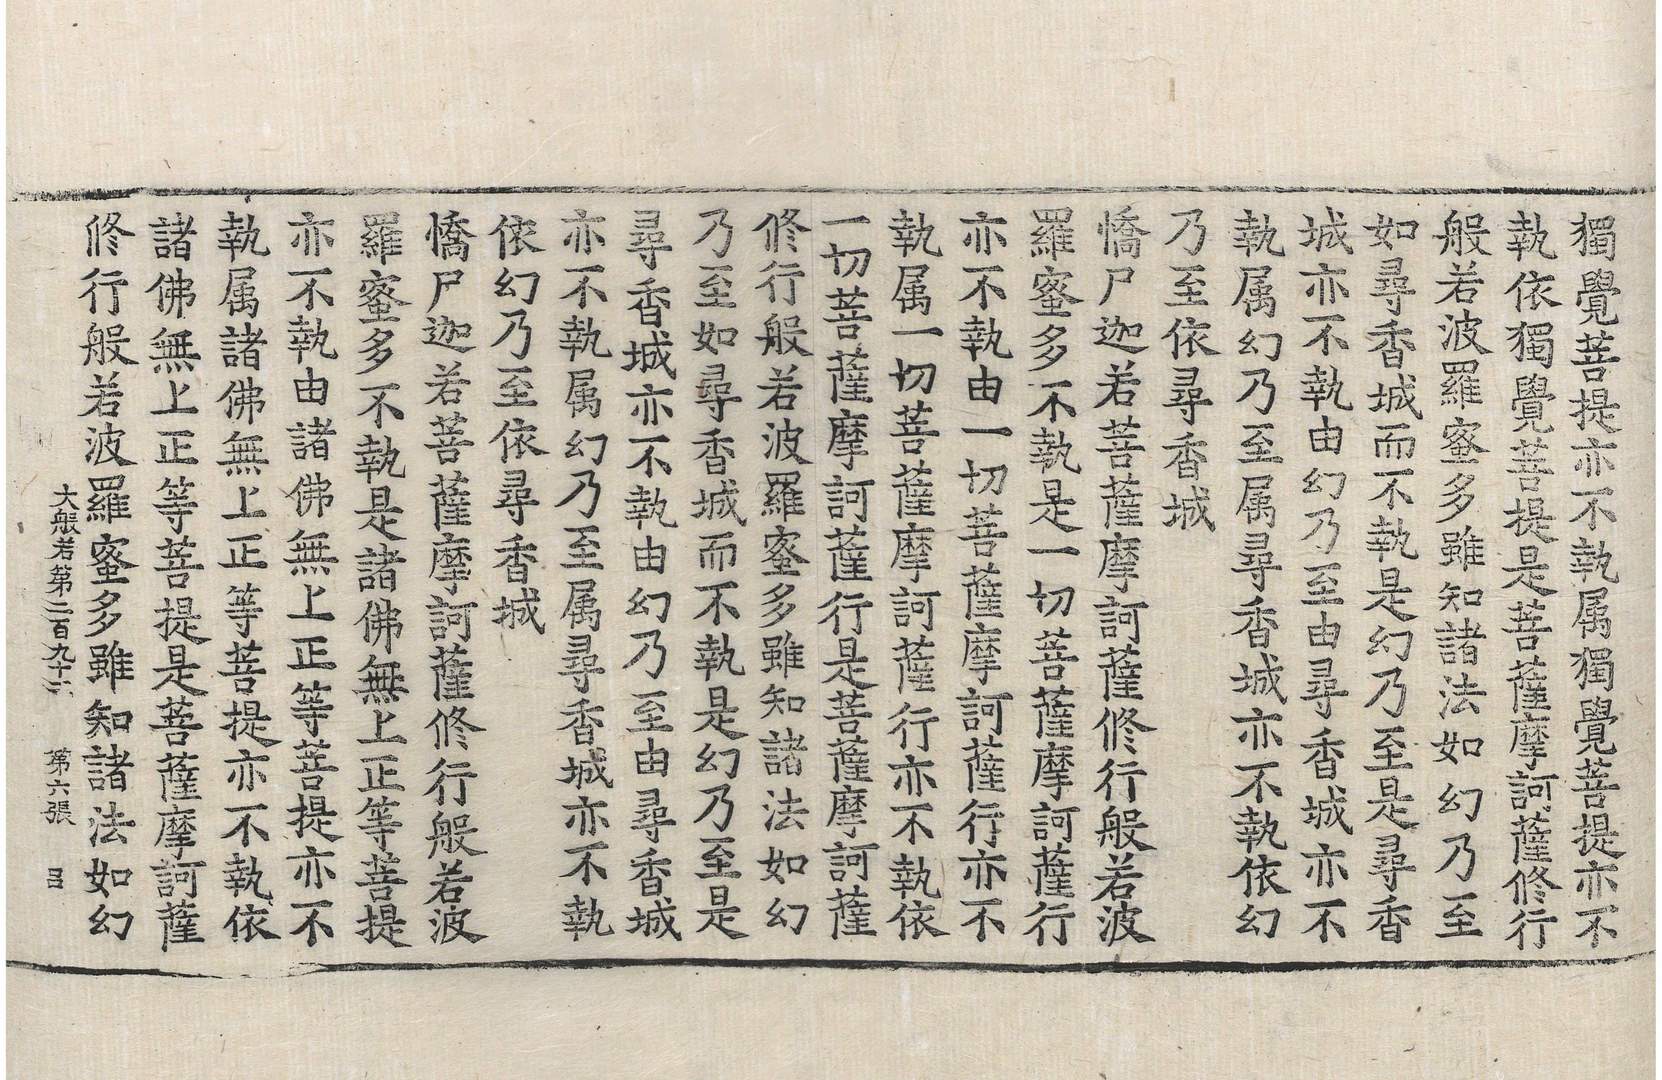 獨覺菩提亦不執属獨覺菩提亦不
執依獨覺菩提是菩薩摩訶薩修行
般若波羅蜜多雖知諸法如幻乃至
如尋香城而不執是幻乃至是尋香
城亦不執由幻乃至由尋香城亦不
執属幻乃至属尋香城亦不執依幻
乃至依尋香城
憍尸迦若菩薩摩訶薩修行般若波
羅蜜多不執是一切菩薩摩訶薩行
亦不執由一切菩薩摩訶薩行亦不
執属一切菩薩摩訶薩行亦不執依
一切菩薩摩訶薩行是菩薩摩訶薩
修行般若波羅蜜多雖知諸法如幻
乃至如尋香城而不執是幻乃至是
尋香城亦不執由幻乃至由尋香城
亦不執属幻乃至属尋香城亦不執
依幻乃至依尋香城
憍尸迦若菩薩摩訶薩修行般若波
羅蜜多不執是諸佛無上正等菩提
亦不執由諸佛無上正等菩提亦不
執属諸佛無上正等菩提亦不執依
諸佛無上正等菩提是菩薩摩訶薩
修行般若波羅蜜多雖知諸法如幻
大般若第二百九十六 第六張 呂